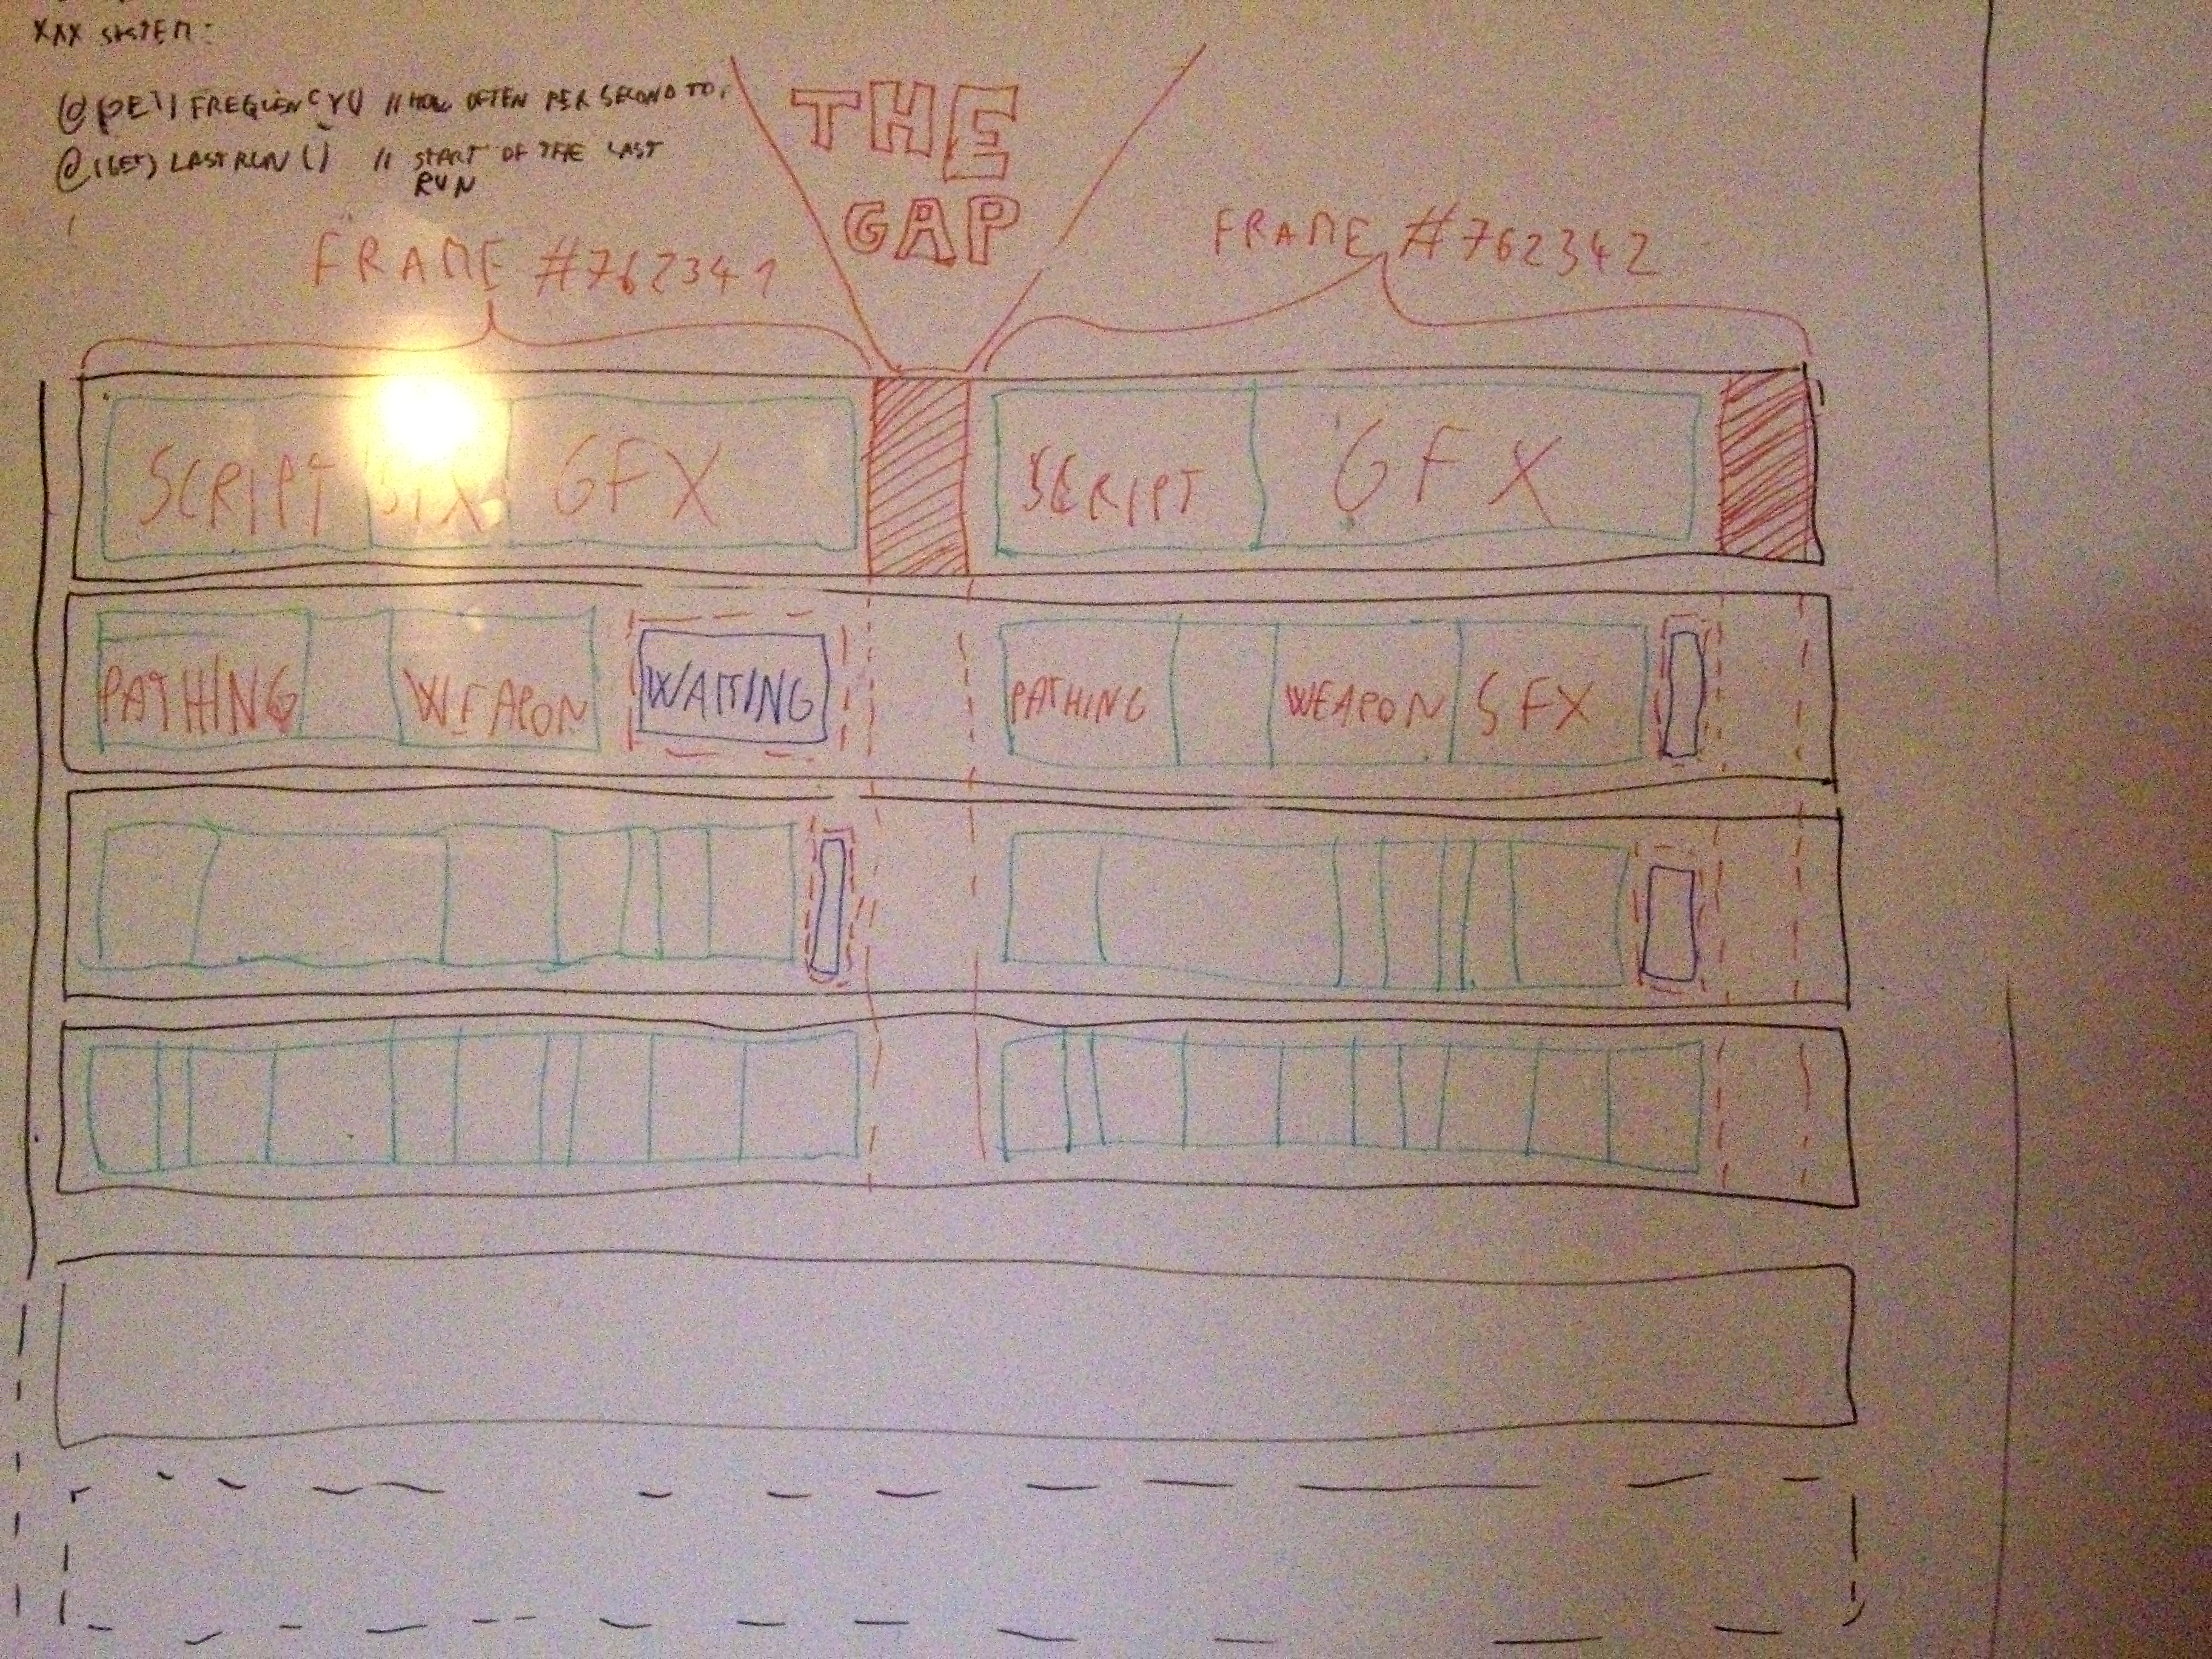 XXX SYSTEM:
FREQUENCY() // HOW OFTEN PER SECOND TO
@(GET) LAST RUN () // START OF THE LAST
RUN
THE
GAP
FRAME #762341
FRAME #762342
SCRIPT SFX GFX
SCRIPT GFX
PATHING WEAPON WAITING
PATHING WEAPON SFX